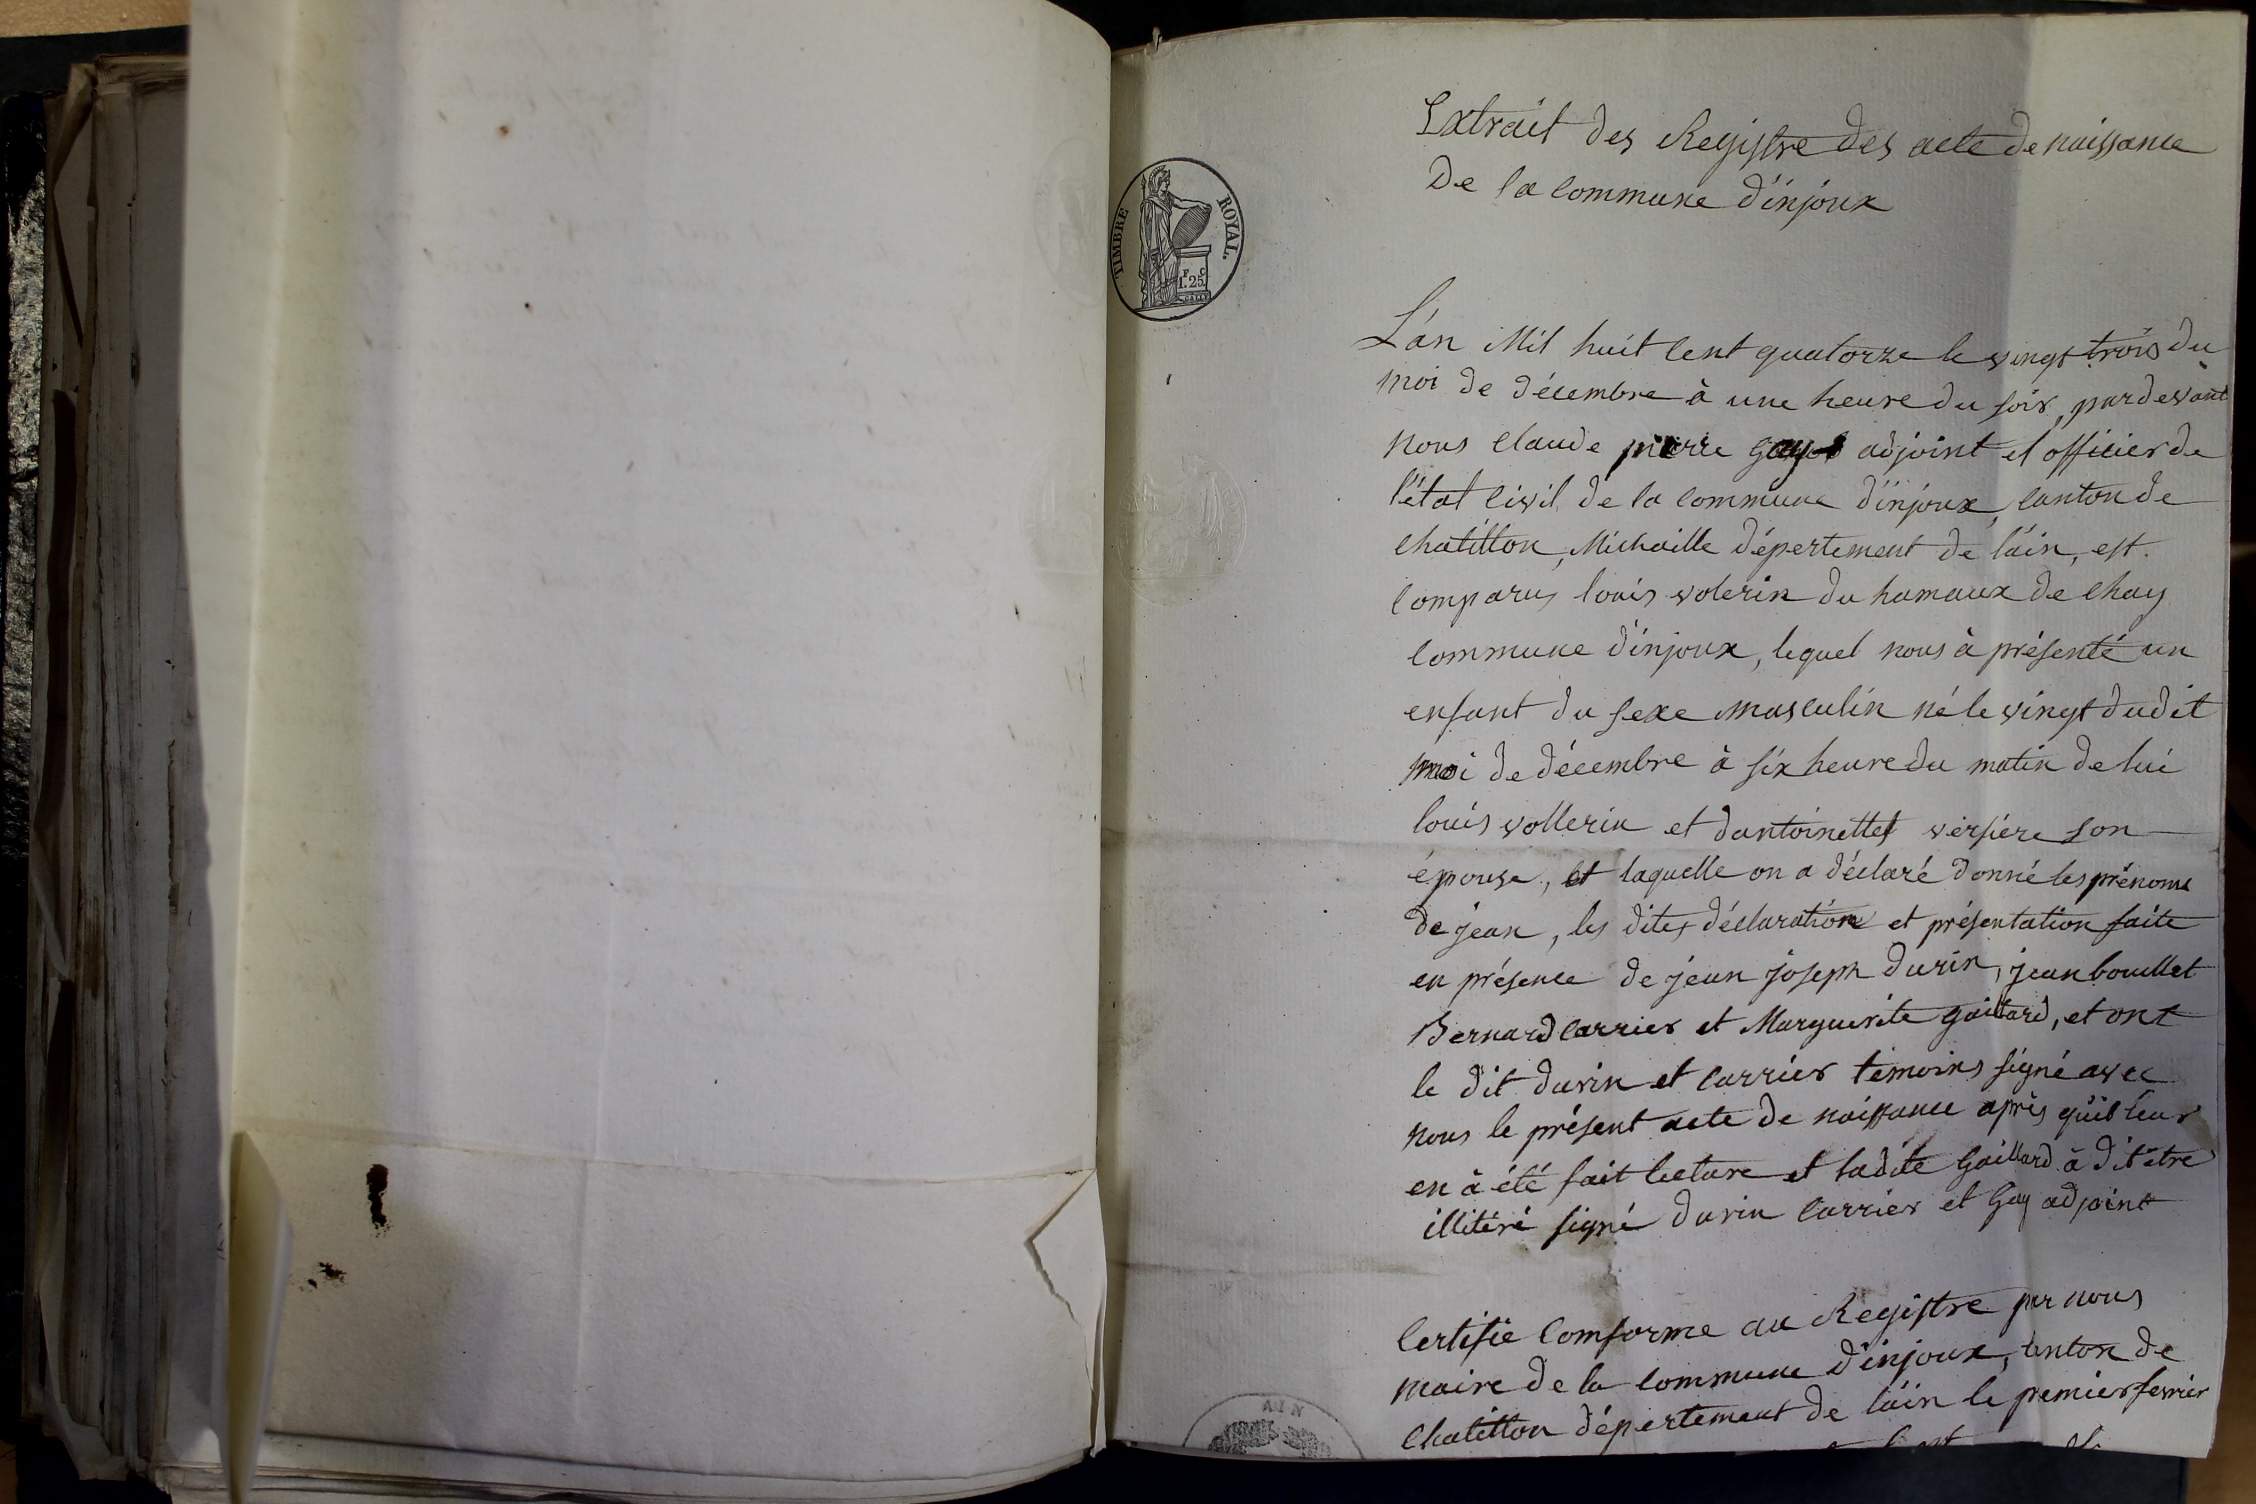 Extrait des Registre des acte de naissance
De la commune d'injoux
TIMBRE ROYAL.
F C
1.25
L'an Mil huit cent quatorze le vingt trois du
moi de décembre à une heure du soir, pardevant
nous Claude pierre gay adjoint et officier de
l'état civil de la commune d'injoux, canton de
chatillon, Michaille département de l'ain, est
comparus louis volerin du hamaux de chay
commune d'injoux, lequel nous à présenté un
enfant du sexe masculin né le vingt dudit
moi de décembre à six heure du matin de lui
louis vollerin et dantoinette versiere son
épouse, et laquelle on a déclaré donné les prénoms
de jean, les dites déclaration et présentation faite
en présence de jean joseph durin, jean bouillet
Bernard Carrier et Marguerite gaillard, et ont
le dit durin et carrier témoins signé avec
nous le présent acte de naissance après qu'il leur
en à été fait lecture et ladite Gaillard à dit être
illitéré signé durin Carrier et Gay adjoint
Certifié Comforme au Registre par nous
maire de la commune d'injoux, canton de
Chatillon département de l'ain le premier fevrier
AIN